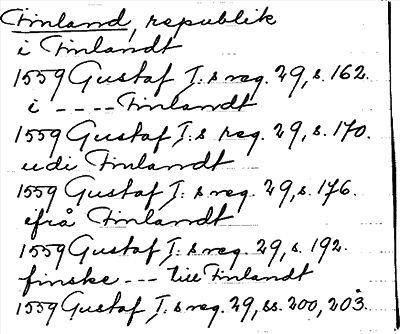 Finland, republik
i Finlandt
1559 Gustaf I:s reg. 29, s. 162.
i ---- Finlandt
1559 Gustaf I:s reg. 29, s. 170.
udi Finlandt
1559 Gustaf I:s reg. 29, s. 176.
efrå Finlandt
1559 Gustaf I:s reg. 29, s. 192.
finske --- till Finlandt
1559 Gustaf I:s reg. 29, ss. 200, 203.